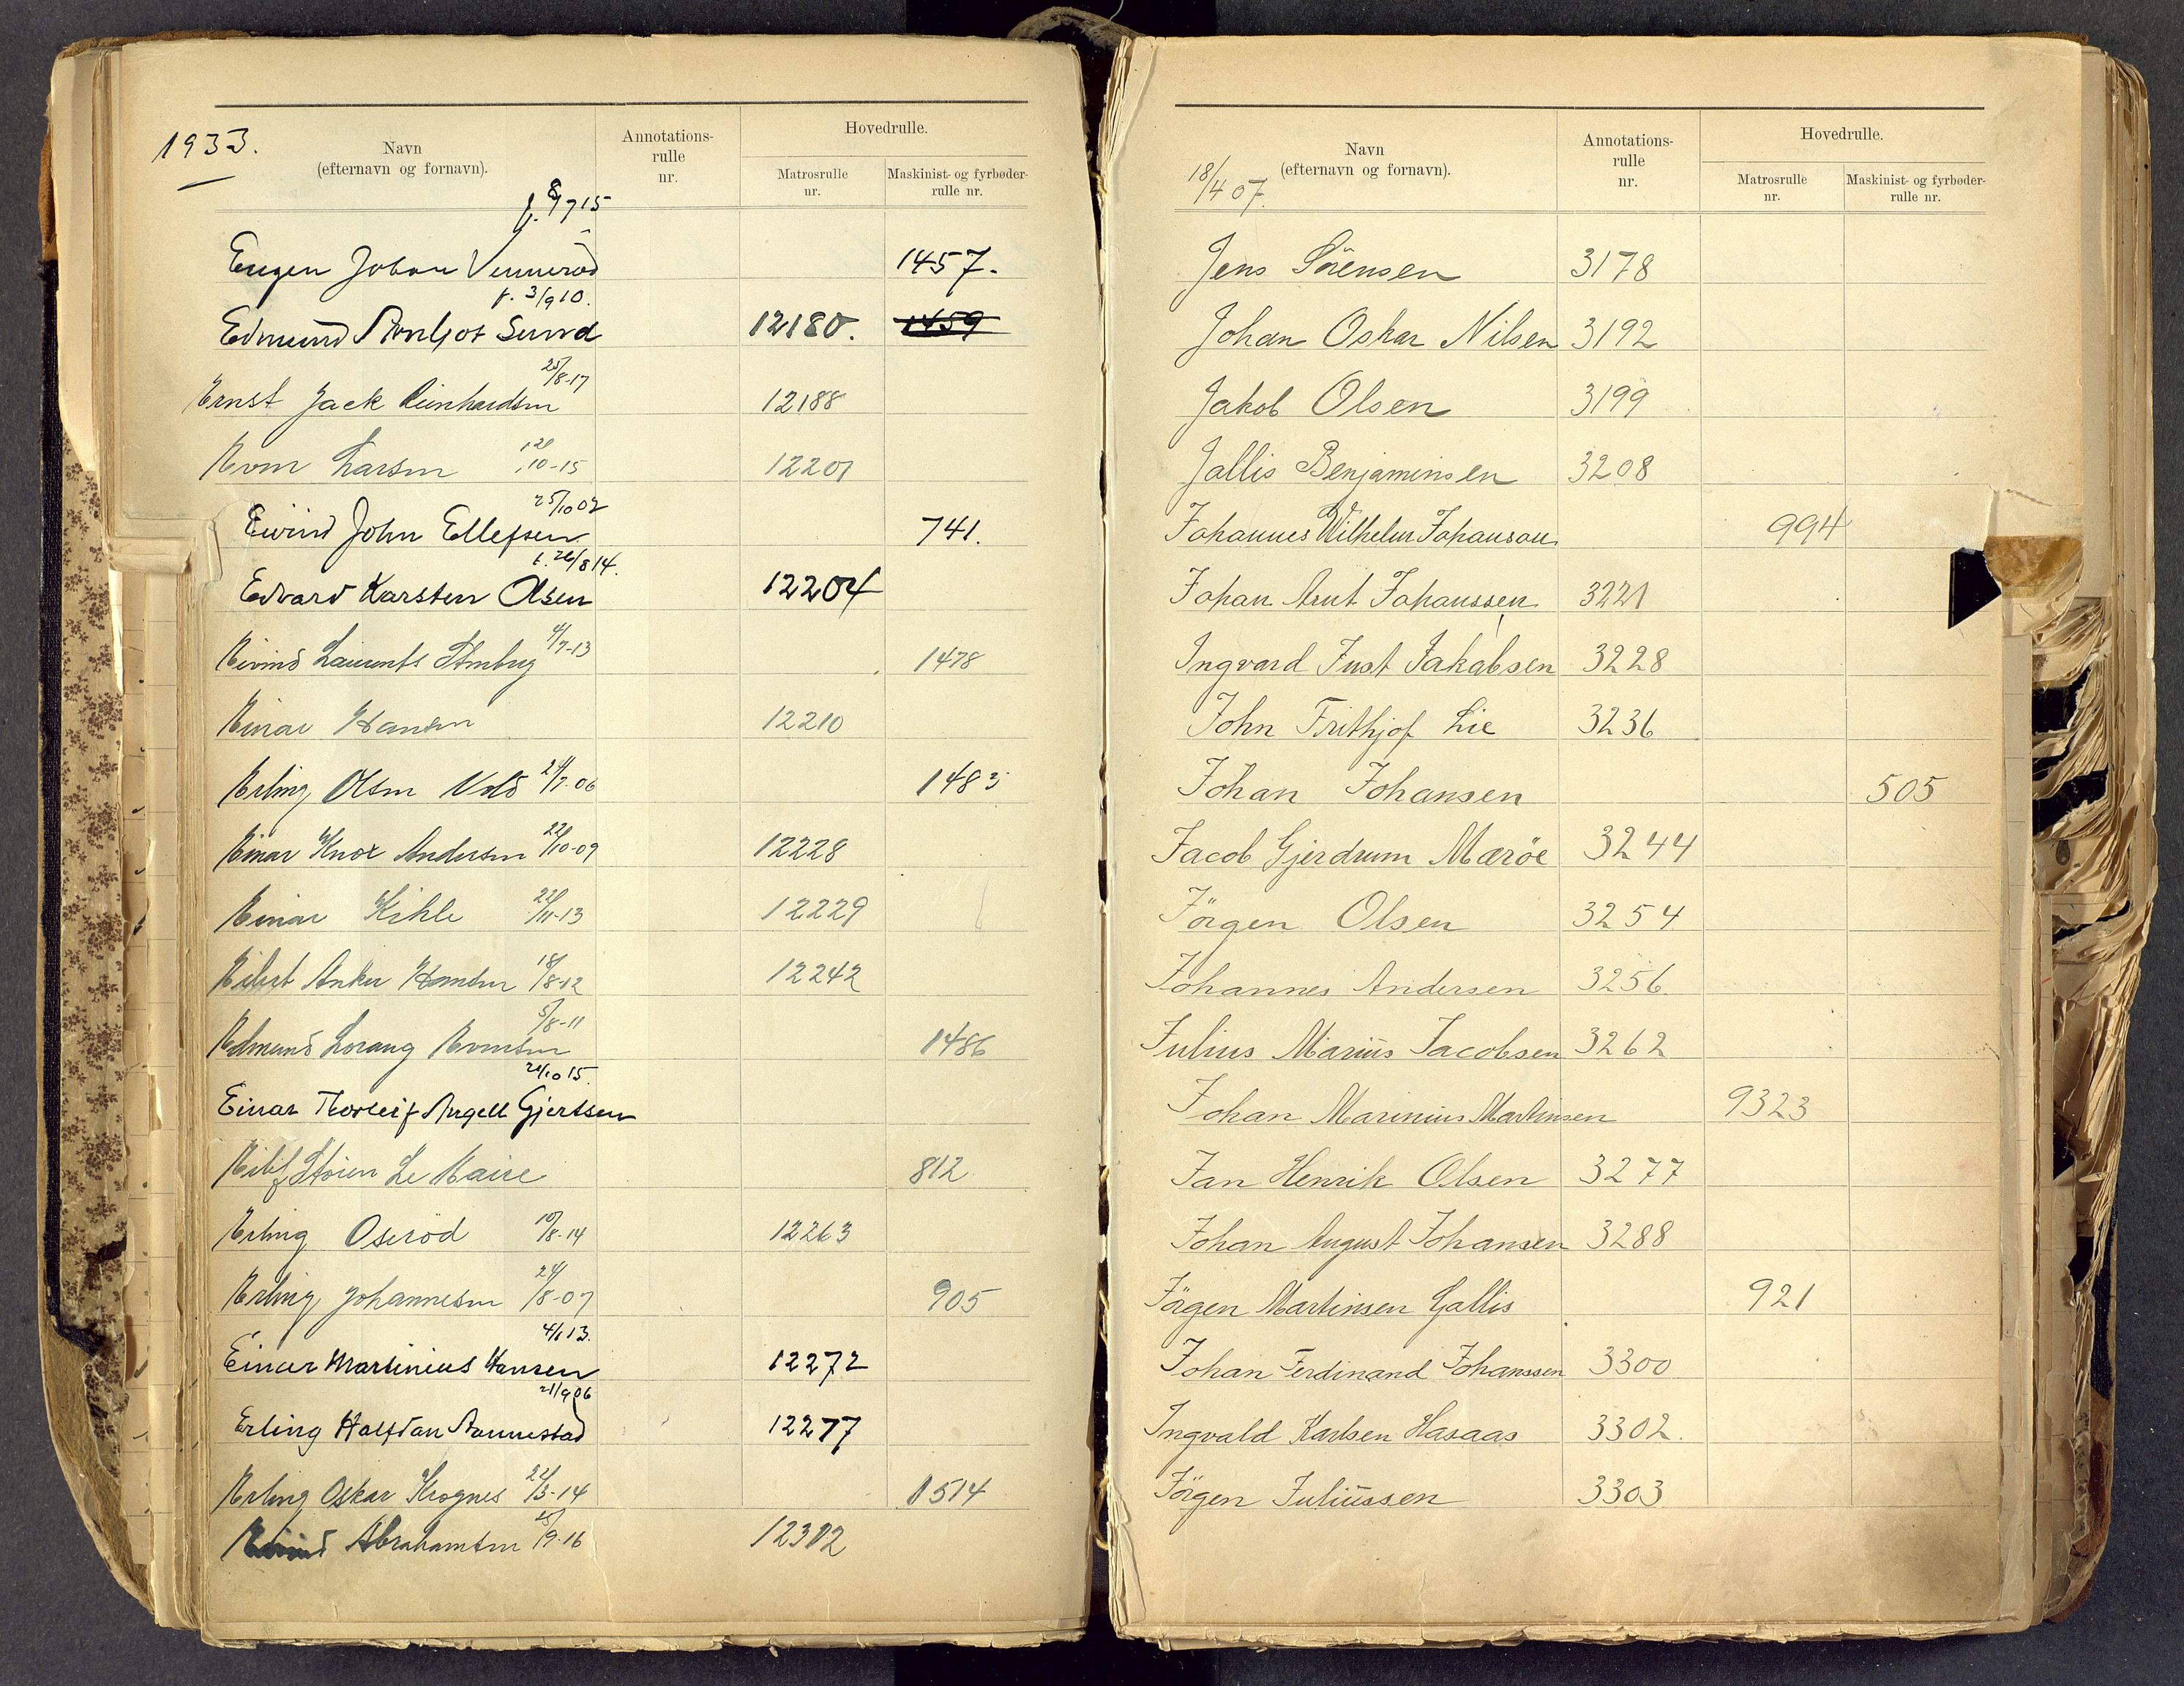 1933.
Navn
(efternavn og fornavn).
Annotations-
rulle
nr.
Hovedrulle.
Matrosrulle
nr.
Maskinist- og fyrbøder-
rulle nr.
f. 8/7 15
Eugen Johan Vennerød 1457.
f. 3/9 10.
Edmund Sund 12180. 1459
25/8-17
Ernst Jack Reinhardsen 12188
Larsen 10-15 12201
25/10 02
Eivind John Ellefsen 741.
f. 26/8 14.
Edvard Karsten Olsen 12204
Eivind 4/7-13 1478
Einar Hansen 12210
Erling Olsen Vold 24/7-06 1483
Einar Knox Andersen 22/10-09 12228
Einar Kihle 22/11-13 12229
Eilert Anker Hansen 18/8-12 12242
5/8-11
Edmund Lorang Evensen 1486
24/10 15.
Einar Thorleif Angell Gjertsen
Eilif Støren Le Maire 812
Erling Oserød 10/8-14 12263
Erling Johannesen 24/8-07 905
4/1 13.
Einar Martinius Hansen 12272
21/9 06
Erling Halfdan Aannestad 12277
Erling Oskar Krognes 22/3-14 1514
Eivind Abrahamsen 15/9-16 12302
18/4 07.
Navn
(efternavn og fornavn).
Annotations-
rulle
nr.
Hovedrulle.
Matrosrulle
nr.
Maskinist- og fyrbøder-
rulle nr.
Jens Sörensen 3178
Johan Oskar Nilsen 3192
Jakob Olsen 3199
Jallis Benjaminsen 3208
Johannes Wilhelm Johanson 994
Johan Arnt Johanssen 3221
Ingvard Just Jakabsen 3228
John Frithjof Lie 3236
Johan Johansen 505
Jacob Gjerdrum Mæröe 3244
Jörgen Olsen 3254
Johannes Andersen 3256.
Julius Marius Jacobsen 3262
Johan Marinius Martinsen 9323
Jan Henrik Olsen 3277
Johan August Johansen 3288
Jörgen Martinsen Gallis 921
Johan Ferdinand Johanssen 3300
Ingvald Karlsen Hasaas 3302.
Jörgen Juliussen 3303